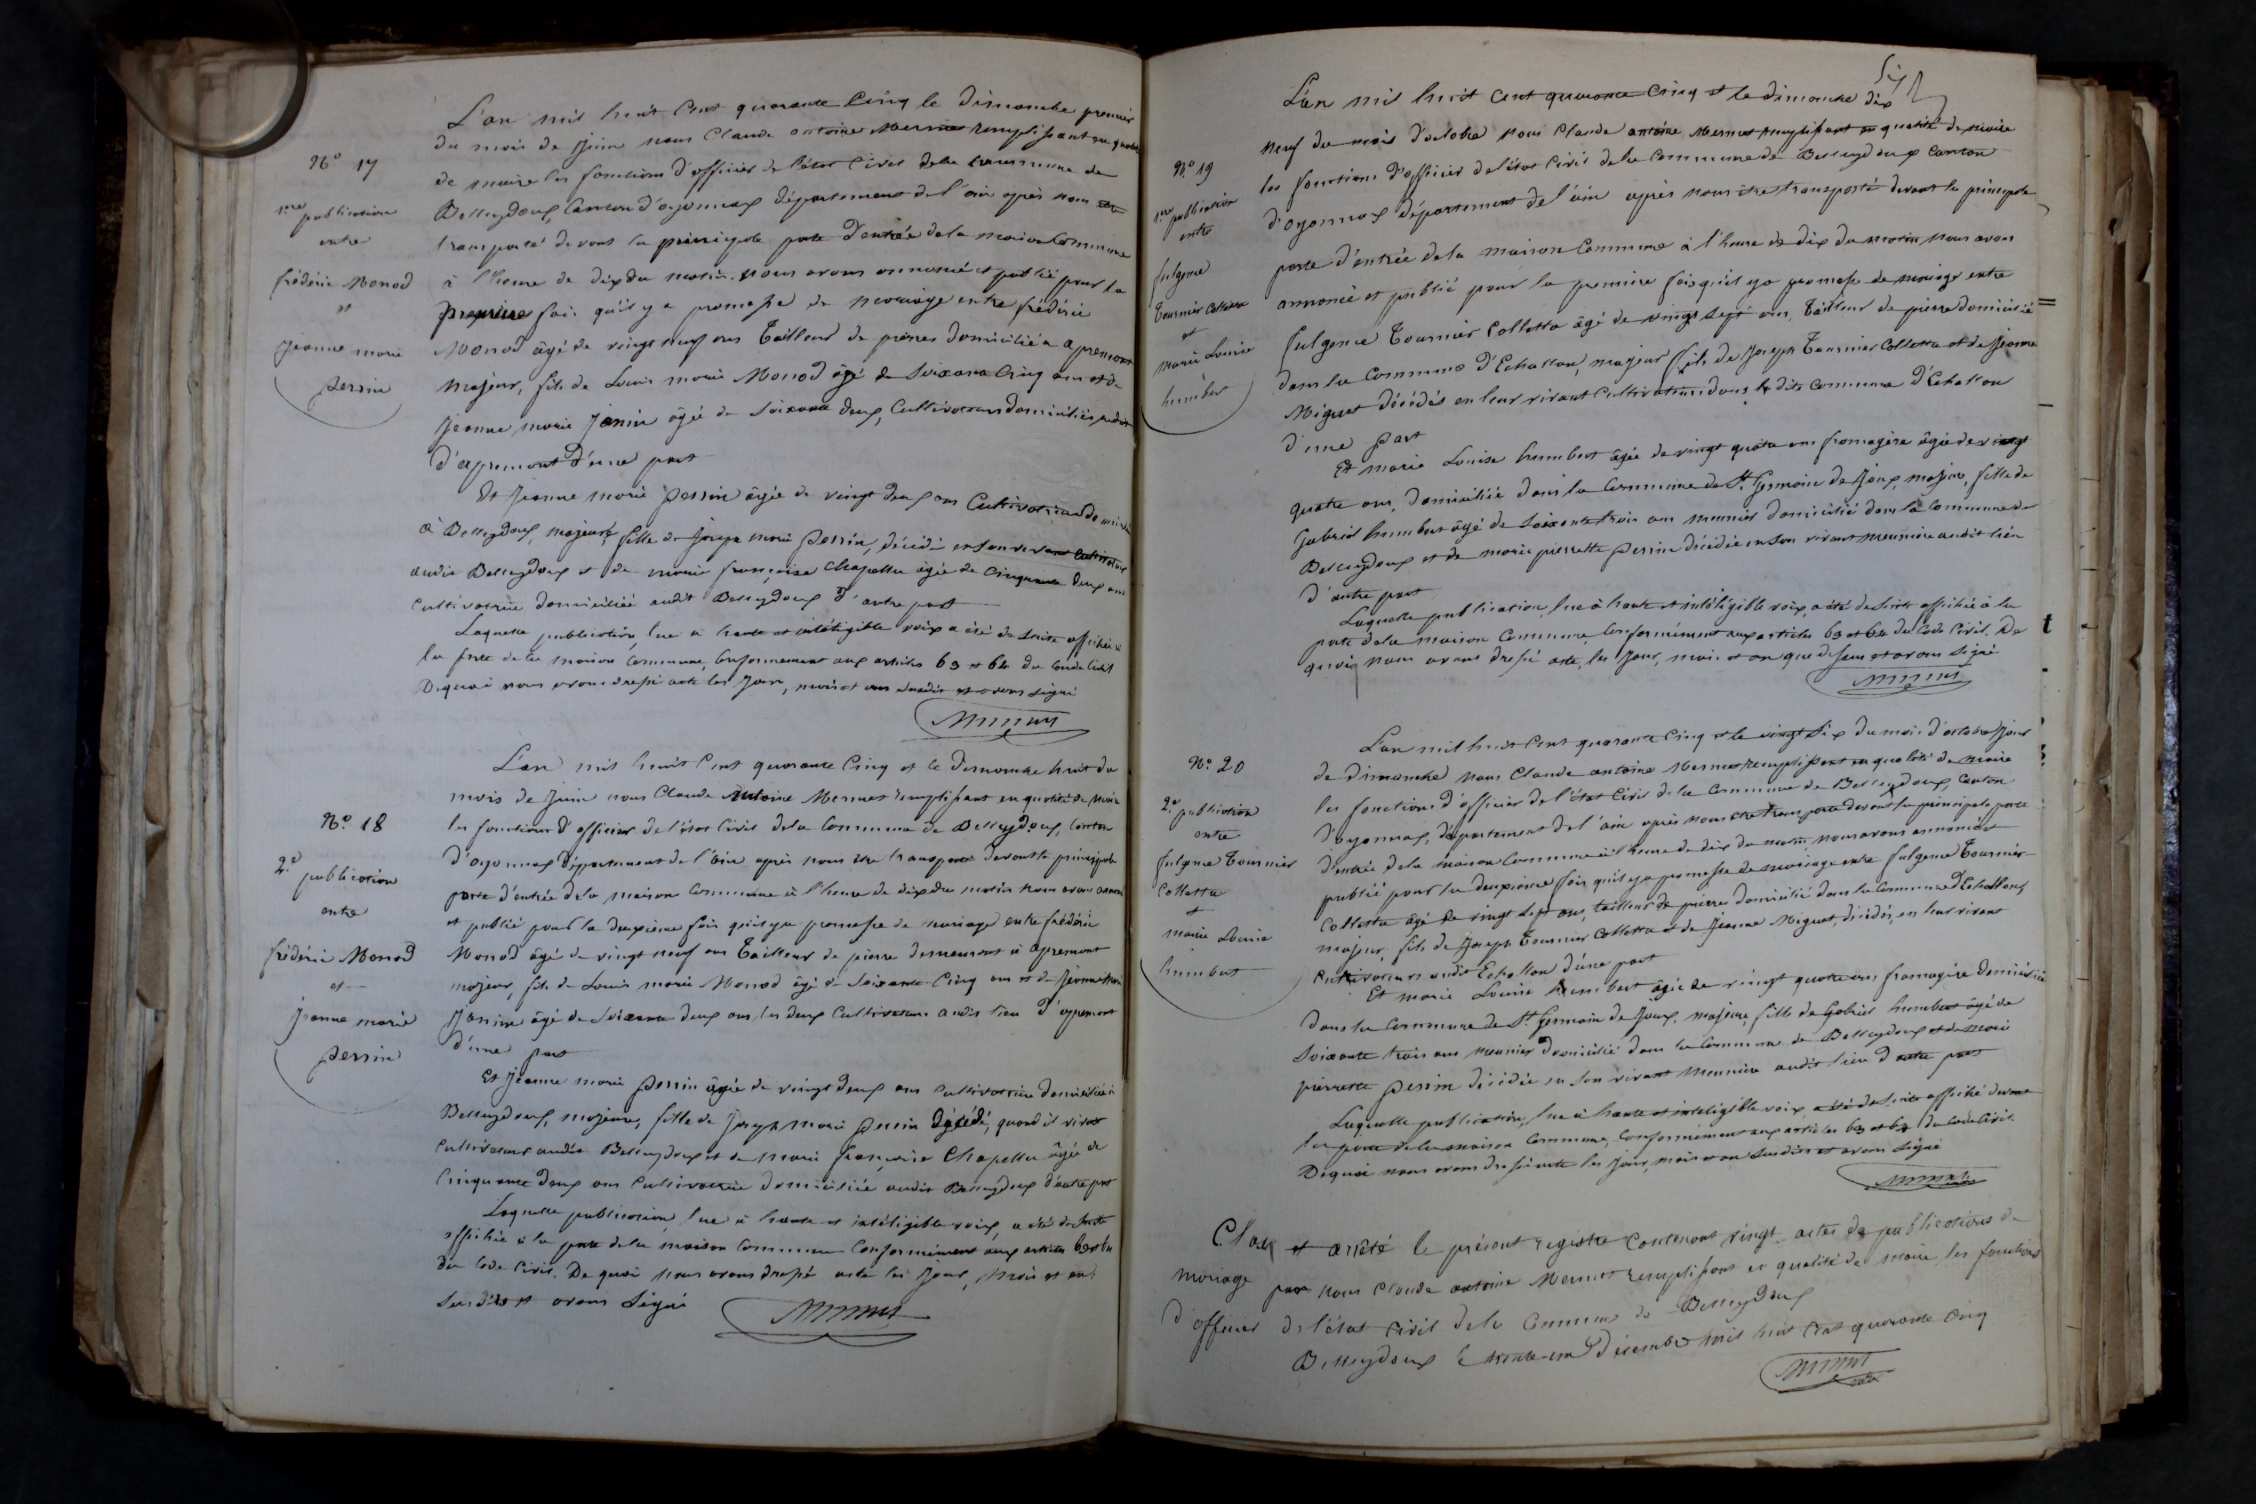 N.o 17
1.ere publication
entre
frédéric Monod
et
Jeanne marie
perrin
L'an mil huit cent quarante Cinq le dimanche premier
du mois de Juin nous Claude antoine Mermet remplissant en qualité
de maire les fonctions d'officier de l'état Civil de la commune de
Belleydoux, Canton d'oyonnax département de l'ain après nous être
transporté devant la principale porte d'entrée de la maison Commune
à l'heure de dix du matin. nous avons annoncé et publié pour la
première fois qu'il y a promesse de mariage entre frédéric
Monod âgé de vingt neuf ans Tailleur de pierres domicilié a apremont
Majeur, fils de Louis marie Monod âgé de Soixante Cinq ans et de
Jeanne marie Janin âgée de Soixante deux, Cultivateurs domiciliés audit
d'apremont d'une part
Et Jeanne marie perrin âgée de vingt deux ans Cultivatrice domiciliée
à Belleydoux, majeure, fille de Joseph marie perrin, décédé en son vivant cultivateur
audit Belleydoux et de marie françoise Chapellu âgée de Cinquante deux ans
Cultivatrice domiciliée audit Belleydoux d'autre part
Laquelle publication, lue à haute et intéligible voix a été de suite affichée à
la porte de la maison Commune, Conformement aux articles 63 et 64 du Code Civil
De quoi nous avons dressé acte les Jour, mois et an susdits et avons signé
Mermet
N.o 18
2.e publication
entre
frédéric Monod
et
Jeanne marie
perrin
L'an mil huit Cent quarante Cinq et le dimanche huit du
mois de Juin nous Claude Antoine Mermet remplissant en qualité de Maire
les fonctions d'officier de l'état Civil de la Commune de Belleydoux, Canton
d'oyonnax département de l'ain après nous être transporté devant la principale
porte d'entrée de la maison Commune à l'heure de dix du matin nous avons annoncé
et publié pour la deuxième fois qu'il y a promesse de mariage entre frédéric
Monod âgé de vingt neuf ans Tailleur de pierre demeurant à apremont
majeur, fils de Louis marie Monod âgé de Soixante Cinq ans et de Jeanne Marie
Janin âgé de Soixante deux ans, les deux Cultivateurs audit lieu d'apremont
d'une part
Et Jeanne marie perrin âgée de vingt deux ans Cultivatrice domiciliée à
Belleydoux, majeure, fille de Joseph marie perrin décédé, quand il vivait
Cultivateur audit Belleydoux et de marie françoise Chapellu âgée de
Cinquante deux ans Cultivatrice domiciliée audit Belleydoux d'autre part
Laquelle publication lue à haute et intéligible voix, a été de suite
affichée à la porte de la maison Commune Conformément aux articles 63 et 64
du Code Civil. De quoi nous avons dressé acte les Jour, mois et an
susdits et avons signé
Mermet
Six
N.o 19
1.ere publication
entre
fulgence
Tournier Colletta
et
Marie Louise
humbert
L'an mil huit cent quarante Cinq et le dimanche dix
neuf du mois d'octobre nous Claude antoine Mermet remplissant en qualité de maire
les fonctions d'officier de l'état Civil de la Commune de Belleydoux Canton
d'oyonnax département de l'ain après nous être transporté devant la principale
porte d'entrée de la maison Commune à l'heure de dix du matin nous avons
annoncé et publié pour la première fois qu'il y a promesse de mariage entre
fulgence Tournier Colletta âgé de vingt sept ans, Tailleur de pierre domicilié
dans la Commune d'Echallon, majeur fils de Joseph Tournier Colletta et de Jeanne
Miguet décédés en leur vivant Cultivateurs dans la dite Commune d'Echallon
d'une part
Et marie Louise humbert âgée de vingt quatre ans fromagère âgée de vingt
quatre ans, domiciliée dans la Commune de St. Germain de Joux, majeure, fille de
Gabriel humbert âgé de Soixante trois ans meunier domicilié dans la Commune de
Belleydoux et de marie pierrette perrin décédée en son vivant meunière audit lieu
d'autre part
Laquelle publication, lue à haute et intéligible voix, a été de suite affichée à la
porte de la maison Commune, Conformément aux articles 63 et 64 du Code Civil. De
quoi nous avons dressé acte, les Jour, mois et an que dessus et avons signé
Mermet
N.o 20
2.e publication
entre
fulgence Tournier
Colletta
et
marie Louise
humbert
L'an mil huit Cent quarante Cinq et le vingt Six du mois d'octobre Jour
de dimanche nous Claude antoine Mermet remplissant en qualité de maire
les fonctions d'officier de l'état Civil de la Commune de Belleydoux, Canton
d'oyonnax, département de l'ain après nous être transporté devant la principale porte
d'entrée de la maison Commune à l'heure de dix du matin, nous avons annoncé et
publié pour la deuxième fois qu'il y a promesse de mariage entre fulgence Tournier
Colletta âgé de vingt sept ans, tailleur de pierre domicilié dans la Commune d'Echallon,
majeur, fils de Joseph Tournier Colletta et de Jeanne Miguet, décédés, en leur vivant
Cultivateurs audit Echallon d'une part
Et marie Louise humbert âgée de vingt quatre ans fromagère domiciliée
dans la Commune de St. Germain de Joux, majeure, fille de Gabriel humbert âgé de
Soixante trois ans meunier domicilié dans la Commune de Belleydoux et de marie
pierrette perrin décédée en son vivant Meunière audit lieu d'autre part
Laquelle publication, lue à haute et intéligible voix, a été de suite affichée devant
la porte de la maison Commune, Conformément aux articles 63 et 64 du Code Civil.
De quoi nous avons dressé acte les Jour, mois et an susdits et avons signé
Mermet
Clos et arrêté le présent registre Contenant vingt actes de publications de
mariage par nous Claude antoine Mermet remplissant en qualité de maire les fonctions
d'officier de l'état civil de la Commune de Belleydoux
Belleydoux le trente-un décembre mil huit Cent quarante Cinq
Mermet